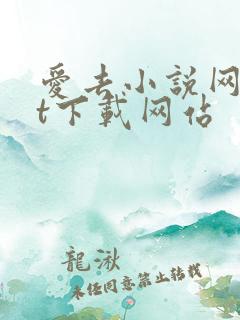 愛去小說网
t下載网站
龍湫
未经同意禁止转载